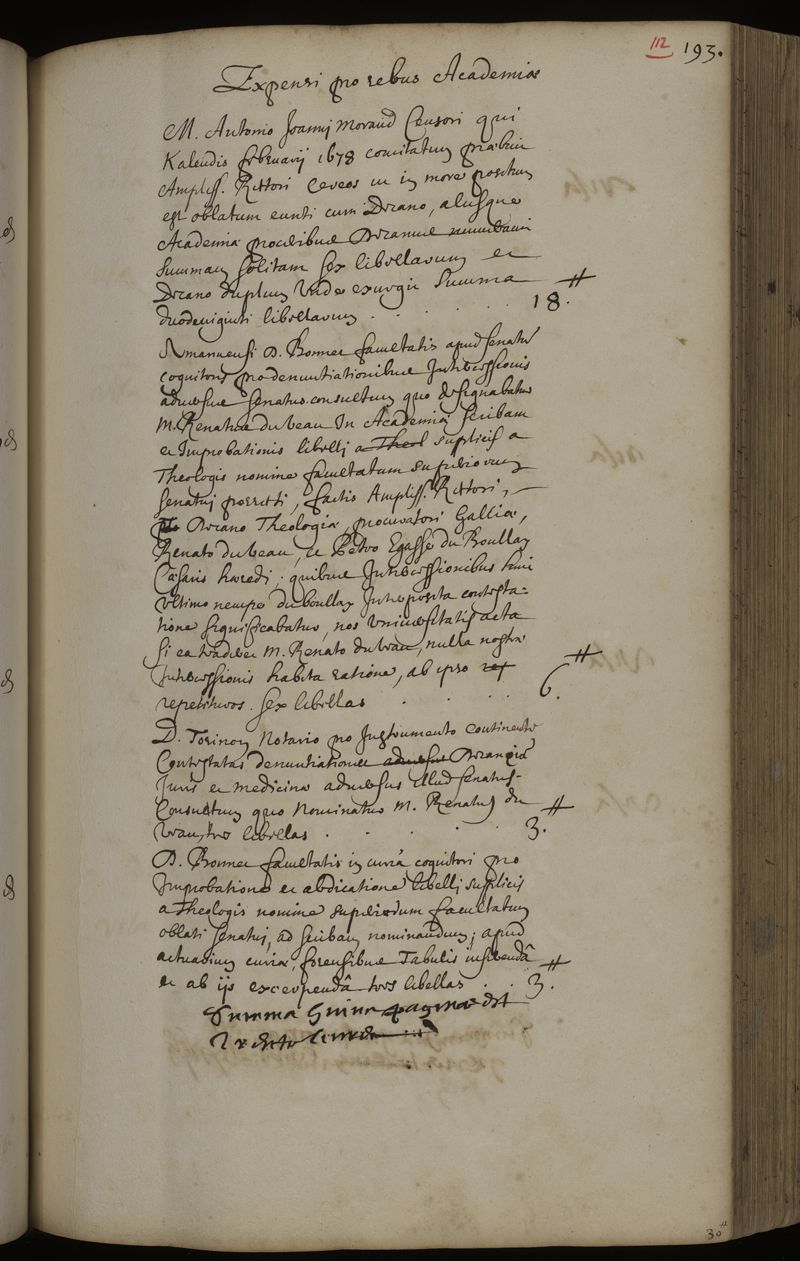 112 193.
Expensi pro rebus Academiae
M. Antonio Joanni Moraud Censori qui
Kalendis februarij 1678 comitatum praebuit
Ampliss. Rectori Cereos ut in more positum
est oblatum eunti cum Decano, aliisque
Academiae proceribus Decanus numeravit
summam solitam sex librellarum et
Decano duplum Unde exurgit Summa
duodeviginti librellarum . . . . . . 18. #
Amanuensi D. Bonnet facultatis apud senatum
cognitoris pro denuntiationibus Intercessionis
adversus senatus consultum quo designabatur
M. Renatus du veau In Academiae scribam
et Improbationis libelli a Theol supplicis a
Theologis nomine facultatum superiorum
senatui porrecti, factis Ampliss. Rectori,
Decano Theologiae, procuratori Galliae,
Renato du veau, et Petro Egasse du Boullay
Caesaris haeredi, quibus Intercessionibus huic
ultimo nempe du boullay Interposita contesta-
tione significabatur, nos Universitatis acta
si ea traderet M. Renato du veau, nulla nostrae
Intercessionis habita ratione, ab ipso rep
repetituros. sex libellas . . . . 6. #
D. Torinon Notario pro Instrumento continente
Contestatas denuntiationes adversus Decanorum
Juris et medicinae adversus illud senatus-
Consultum quo Nominatus M. Renatus du
veau, tres librellas . . . . . 3. #
D. Bonnet facultatis in curia cognitori pro
Improbatione et abdicatione libelli supplicis
a Theologis nomine superiorum facultatum
oblati senatui, ad scribam nominandum; apud
actuarium curiae, forensibus Tabulis inscribendâ
et ab iis excerpendâ tres libellas . . 3. #
Summa huius paginae est
30 #